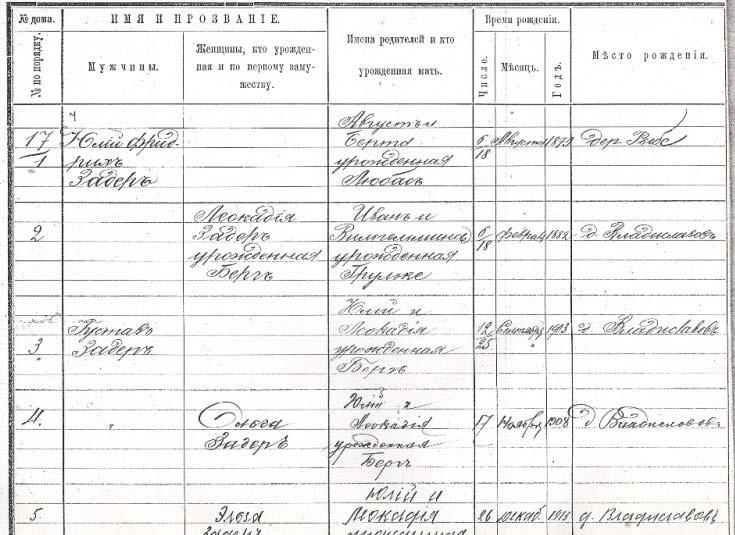 № дома.
ИМЯ И ПРОЗВАНІЕ.
Время рожденія.
№ по порядку.
Мужчины.
Женщины, кто урожден-
ная и по первому заму-
жеству.
Имена родителей и кто
урожденная мать.
Число.
Мѣсяцъ.
Годъ.
Мѣсто рожденія.
17/1
Юлій Фрид-
рихъ
Задеръ
Августъ и
Берта
урожденная
Любасъ
6/18
Августа
1879
дер.
2
Леокадія
Задеръ
урожденная
Бергъ
Иванъ и
Вильгельмина
урожденная
Грульке
6/18
Феврал
1882
д. Владиславовъ
3
Густавъ
Задеръ
Юлій и
Леокадія
урожденная
Бергъ
12/25
Сентябр
1913
д. Владиславовъ
4.
"
Ольга
Задеръ
Юлій и
Леокадія
урожденная
Бергъ
17
Ноябр
1908
д Владиславовъ
5.
Эльза
Задеръ
Юлій и
Леокадія
урожденная
26
Декаб.
1911
д. Владиславовъ